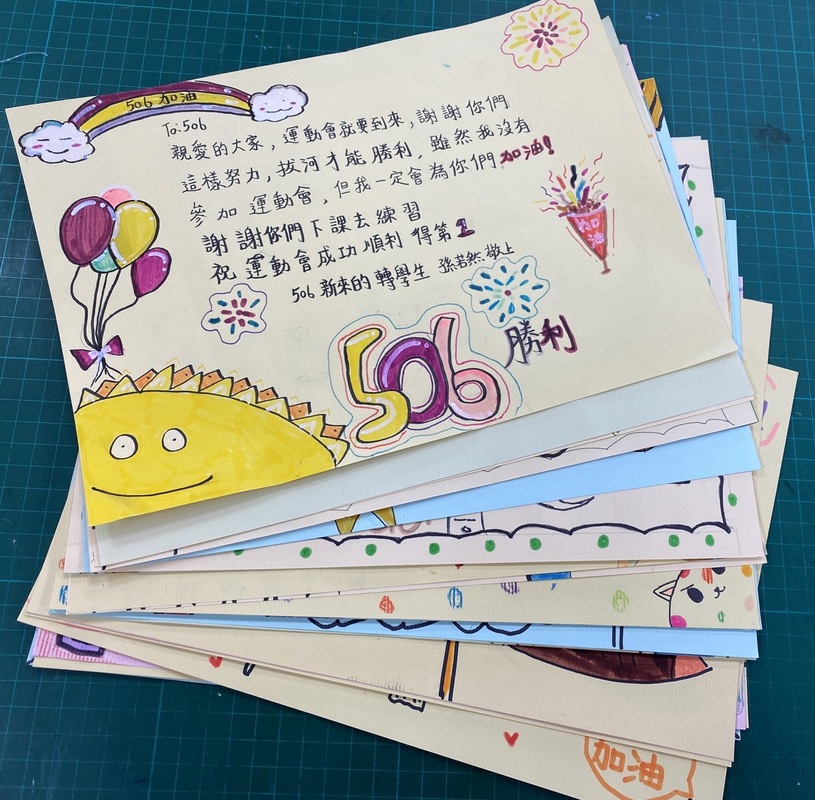 506 加油
To:506
親愛的大家，運動會就要到來，謝謝你們
這樣努力，拔河才能勝利，雖然我沒有
參加運動會，但我一定會為你們加油!
謝謝你們下課去練習
祝運動會成功順利得第1
506新來的轉學生 孫若然敬上
加油
506
勝利
加油